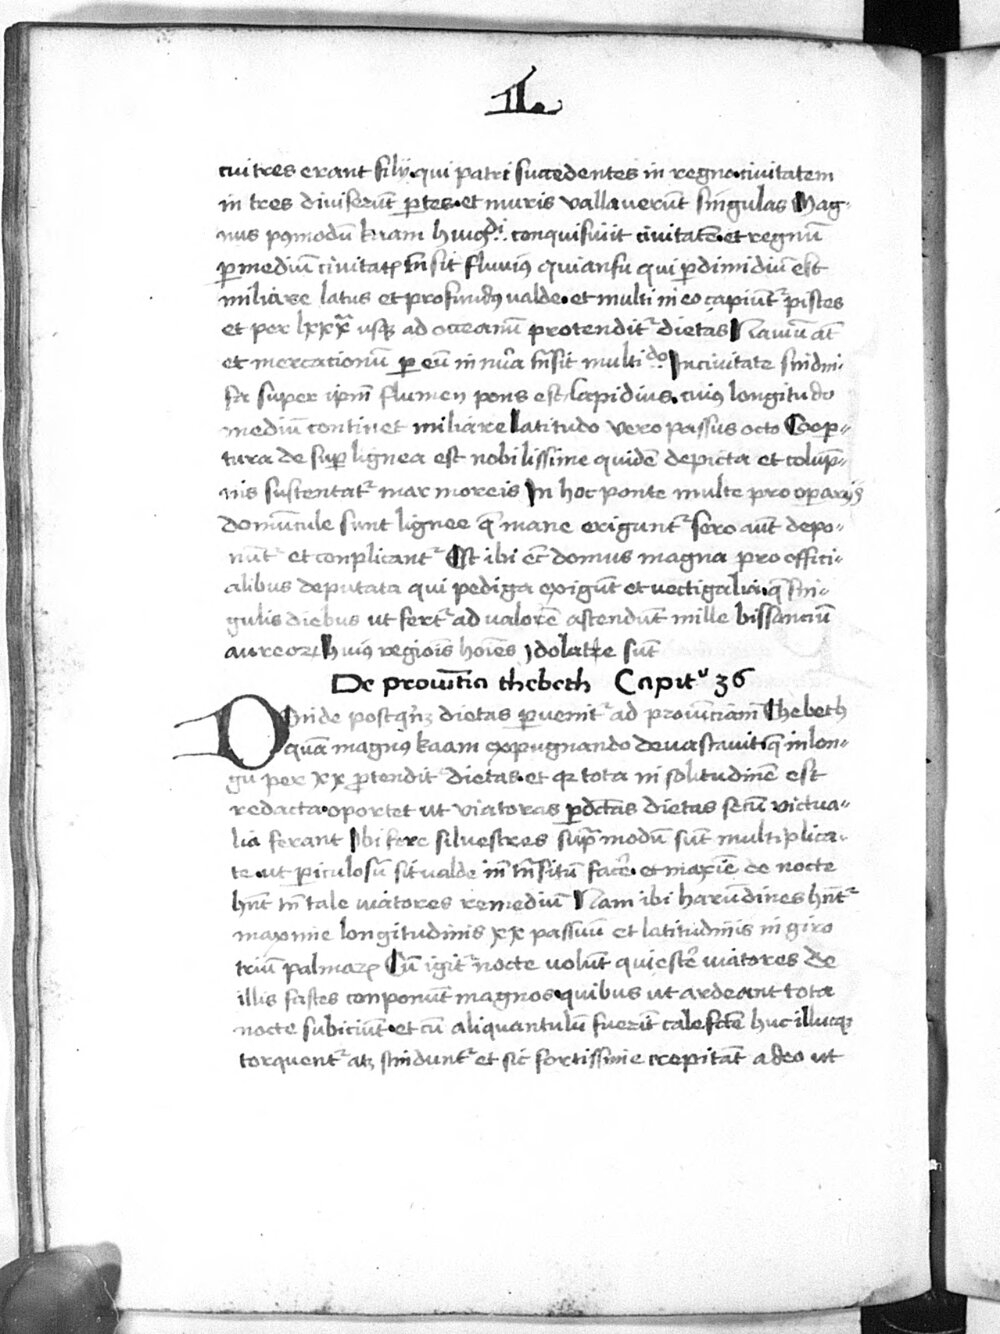 II.
cui tres erant filij. qui patri succedentes in regno. ciuitatem
in tres diuiserūt ꝑtes. et muris vallauerūt singulas Mag-
nus pꝰmodū kaam huiꝰ conquisiuit ciuitatē. et regnū
ꝑ mediū ciuitatꝭ trāsit fluuiꝰ quianfu qui ꝑ dimidiū est
miliare latus et profundꝰ valde. et multi in eo capiūt᷑ pisces
et per lxxx usqꝫ ad occeanū protendit᷑ dietas Nauiū at̄
et mercationū ꝑ eū in nūa trāsit multido In ciuitate sindin-
fu super ipm̄ flumen pons est lapidius. cuiꝰ longitudo
mediū continet miliare latitudo vero passus octo Coop-
tura desuꝑ lignea est nobilissime quidē depicta et colūp-
nis sustentat᷑ marmoreis In hoc ponte multe pro oparijs
domūcule sunt lignee q̄ mane eriguntur᷑ sero aūt depo-
nūt᷑ et conplicant᷑ Est ibi ec̄ domus magna pro offici-
alibus deputata qui pedigia exigūt et vectigalia. q̄ sin-
gulis diebus ut fert᷑ ad valorē ascendūt mille bissanciū
aureoꝝ Huiꝰ regiōis hoīes ydolatre sūt
De prouītia thebeth Capitu 36
Deinde post qn̄qꝫ dietas ꝑuenit᷑ ad prouinciam Thebeth
quā magnꝰ kaam expugnando deuastauit. q̄ in lon-
gū per xx ꝑtendit᷑ dietas. et qꝛ tota in solitudinē est
redacta. oportet ut viatores ꝑdctas dietas secū victua-
lia ferant Ibi fere siluestres supͣ modū sūt multiplica-
te. ut ꝑiculosū sit valde inī trāsitū facē. et maxīe de nocte
hn̄t tn̄ tale uiatores remediū Nam ibi harūdines hn̄t᷑
maxime longitudinis xx passuū et latitudinis in giro
triū palmaꝝ Cū igit᷑ nocte uolūt quiescē uiatores de
illis fasces conponūt magnos. quibus ut ardeant tota
nocte subiciūt. et cū aliquantulū fuerīt calefcte huc illucqꝫ
torquent᷑ atqꝫ scindunt᷑ et sic fortissime crepitāt adeo ut